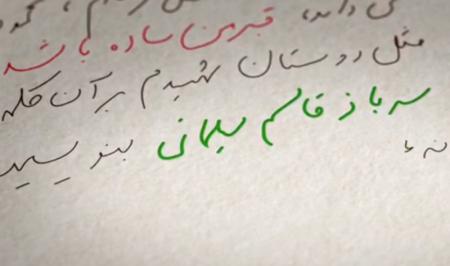 می‌داند،
قبر من ساده باشد
مثل دوستان شهیدم بر آن کلمه
سرباز قاسم سلیمانی بنویسید
نه